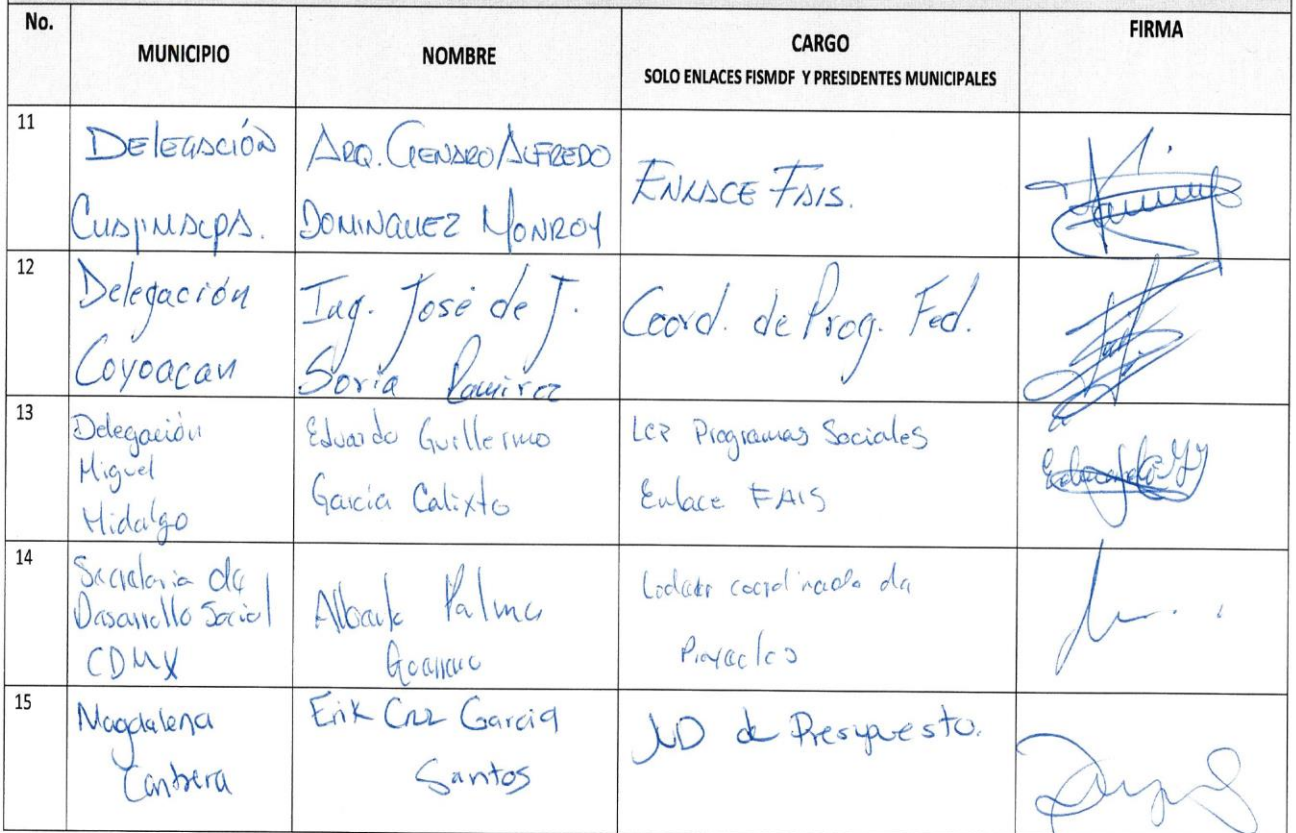 No.
MUNICIPIO
NOMBRE
CARGO
SOLO ENLACES FISMDF Y PRESIDENTES MUNICIPALES
FIRMA
11
DELEGACIÓN
CUAJIMALPA.
ARQ. GENARO ALFREDO
DOMINGUEZ MONROY
ENLACE FAIS.
12
Delegación
Coyoacan
Ing. José de J.
Soria Ramirez
Coord. de Prog. Fed.
13
Delegación
Miguel
Hidalgo
Eduardo Guillermo
García Calixto
LCP Programas Sociales
Enlace FAIS
14
Secretaria de
Desarrollo Social
CDMX
Alberto Palma
de
Proyectos
15
Magdalena
Contrera
Erik Cruz Garcia
Santos
JUD de Presupuesto.